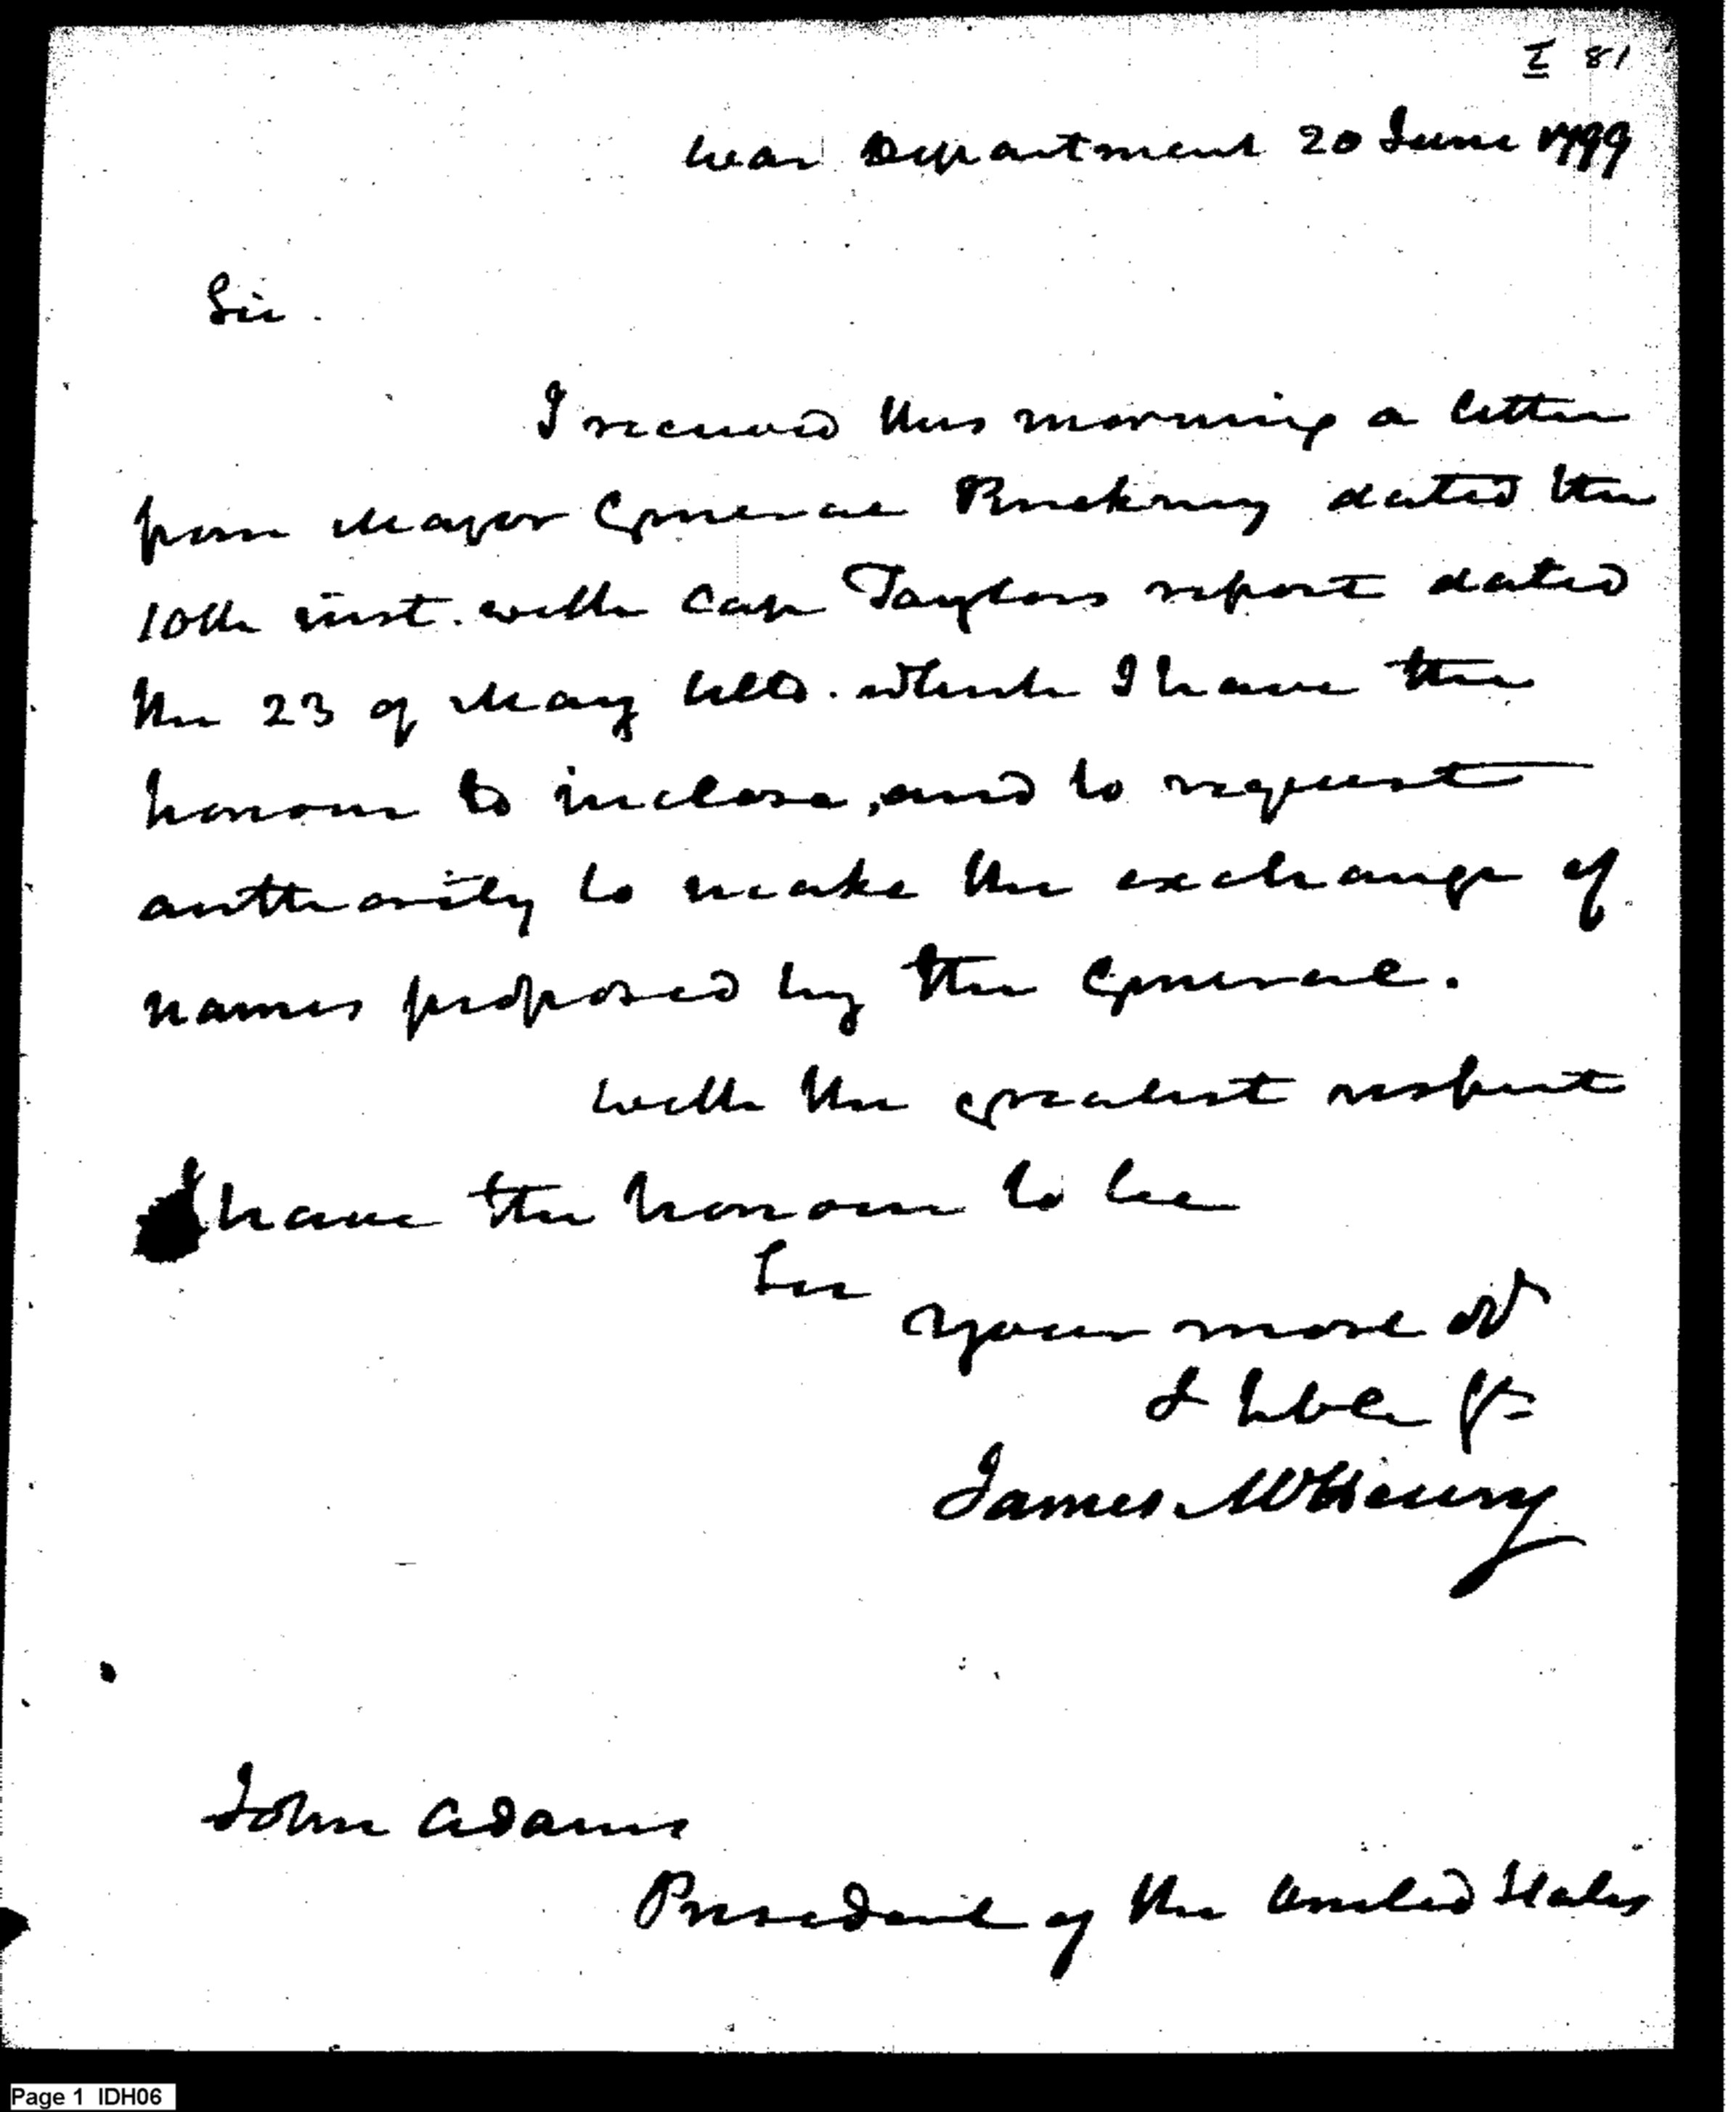 I 81
War Department 20 June 1799
Sir.
I received this morning a letter
from Major General Pinckney dated the
10th inst. with Cap Taylors report dated
the 23 of May ulto. which I have the
honour to inclose, and to request
authority to make the exchange of
names proposed by the General.
With the greatest respect
I have the honour to be
Sir
your most ob
& hble
James McHenry
John Adams
President of the United States
Page 1 IDH06